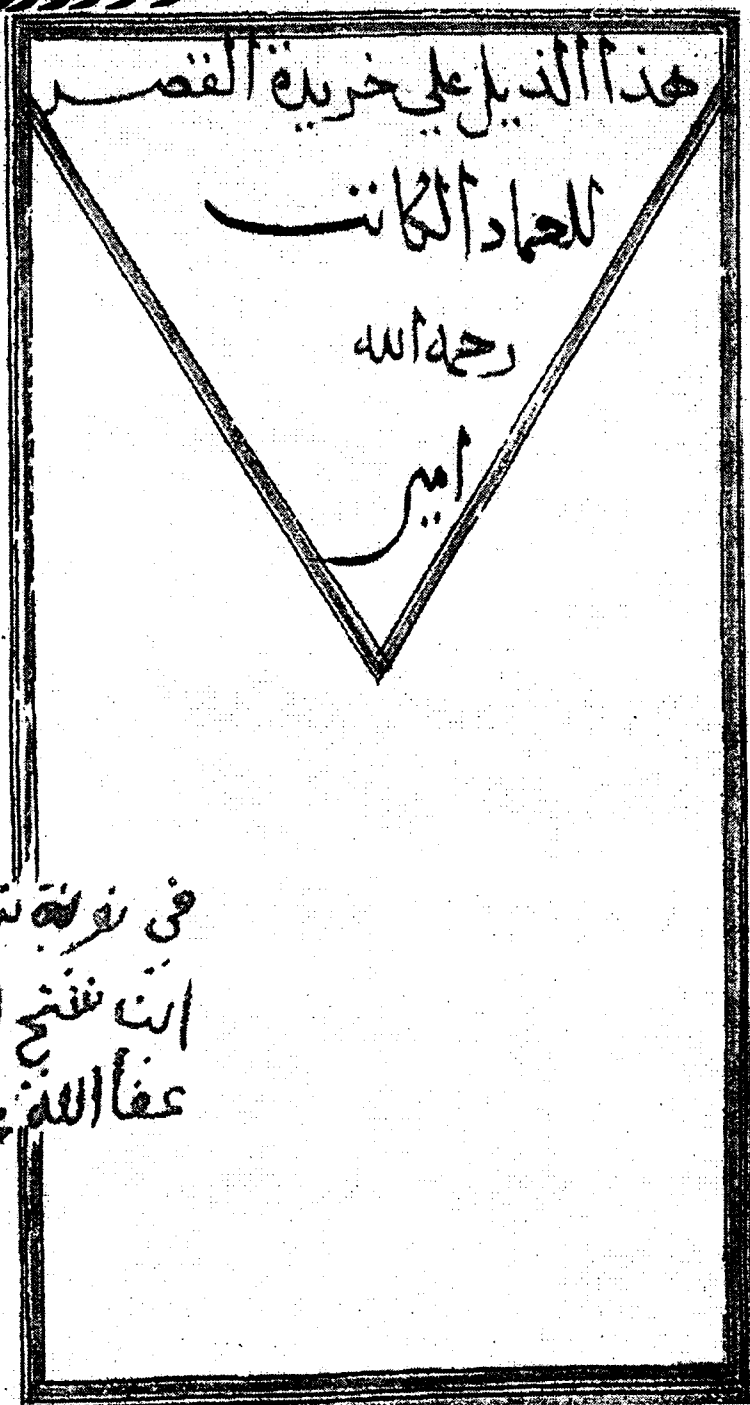 هذا الذيل على خريدة القصر
للعماد الكاتب
رحمه الله
امين
في نوبة
عفا الله